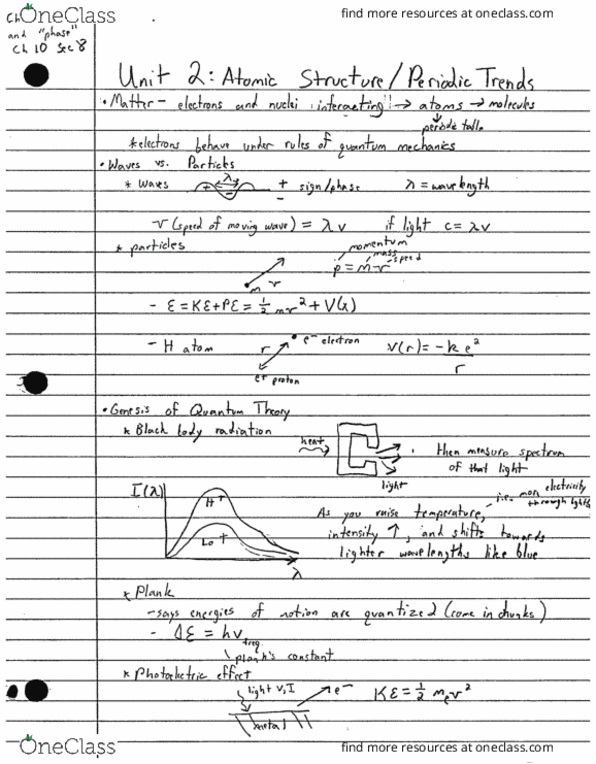 OneClass
find more resources at oneclass.com
and "phase"
Ch 10 Sec 8
Unit 2: Atomic Structure/Periodic Trends
• Matter - electrons and nuclei interacting!! → atoms → molecules
periodic
* electrons behave under rules of quantum mechanics
• Waves vs. Particles
* Waves λ + - + sign/phase - λ = wavelength
v (speed of moving wave) = λν if light c = λν
* particles
momentum
mass
speed
p = m v
m v
- E = KE + PE = ½ mv² + V(x)
- H atom r e⁻ electron V(r) = -k e² / r
e+ proton
• Genesis of Quantum Theory
* Black body radiation
heat
then measure spectrum
of that light
light
I(λ)
Hi T
Lo T
λ
electricity
As you raise temperature, - i.e. more through lights
intensity ↑, and shifts towards
lighter wavelengths like blue
* Plank
- says energies of motion are quantized (come in chunks)
- ΔE = hν
freq.
plank's constant
* Photoelectric effect
light ν, I
e⁻
KE = ½ mₑv²
metal
OneClass
find more resources at oneclass.com